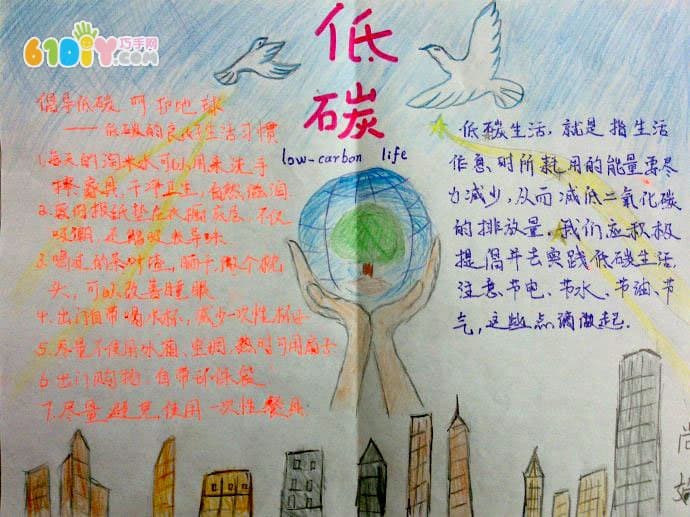 61DIY巧手网
.COM
低
碳
low-carbon life
倡导低碳 呵护地球
——低碳的良好生活习惯
1.每天的淘米水可以用来洗手
擦家具,干净卫生,自然滋润
2.废旧报纸垫在衣橱底层,不仅
吸潮,还能吸收异味
3.喝过的茶叶渣,晒干,做个枕
头,可以改善睡眠
4.出门自带喝水杯,减少一次性杯子
5.尽量不使用冰箱、空调、热时可用扇子
6.出门购物,自带环保袋
7.尽量避免使用一次性餐具
低碳生活,就是指生活
作息时所耗用的能量要尽
力减少,从而减低二氧化碳
的排放量。我们应积极
提倡并去实践低碳生活.
注意节电、节水、节油、节
气,这些点滴做起.